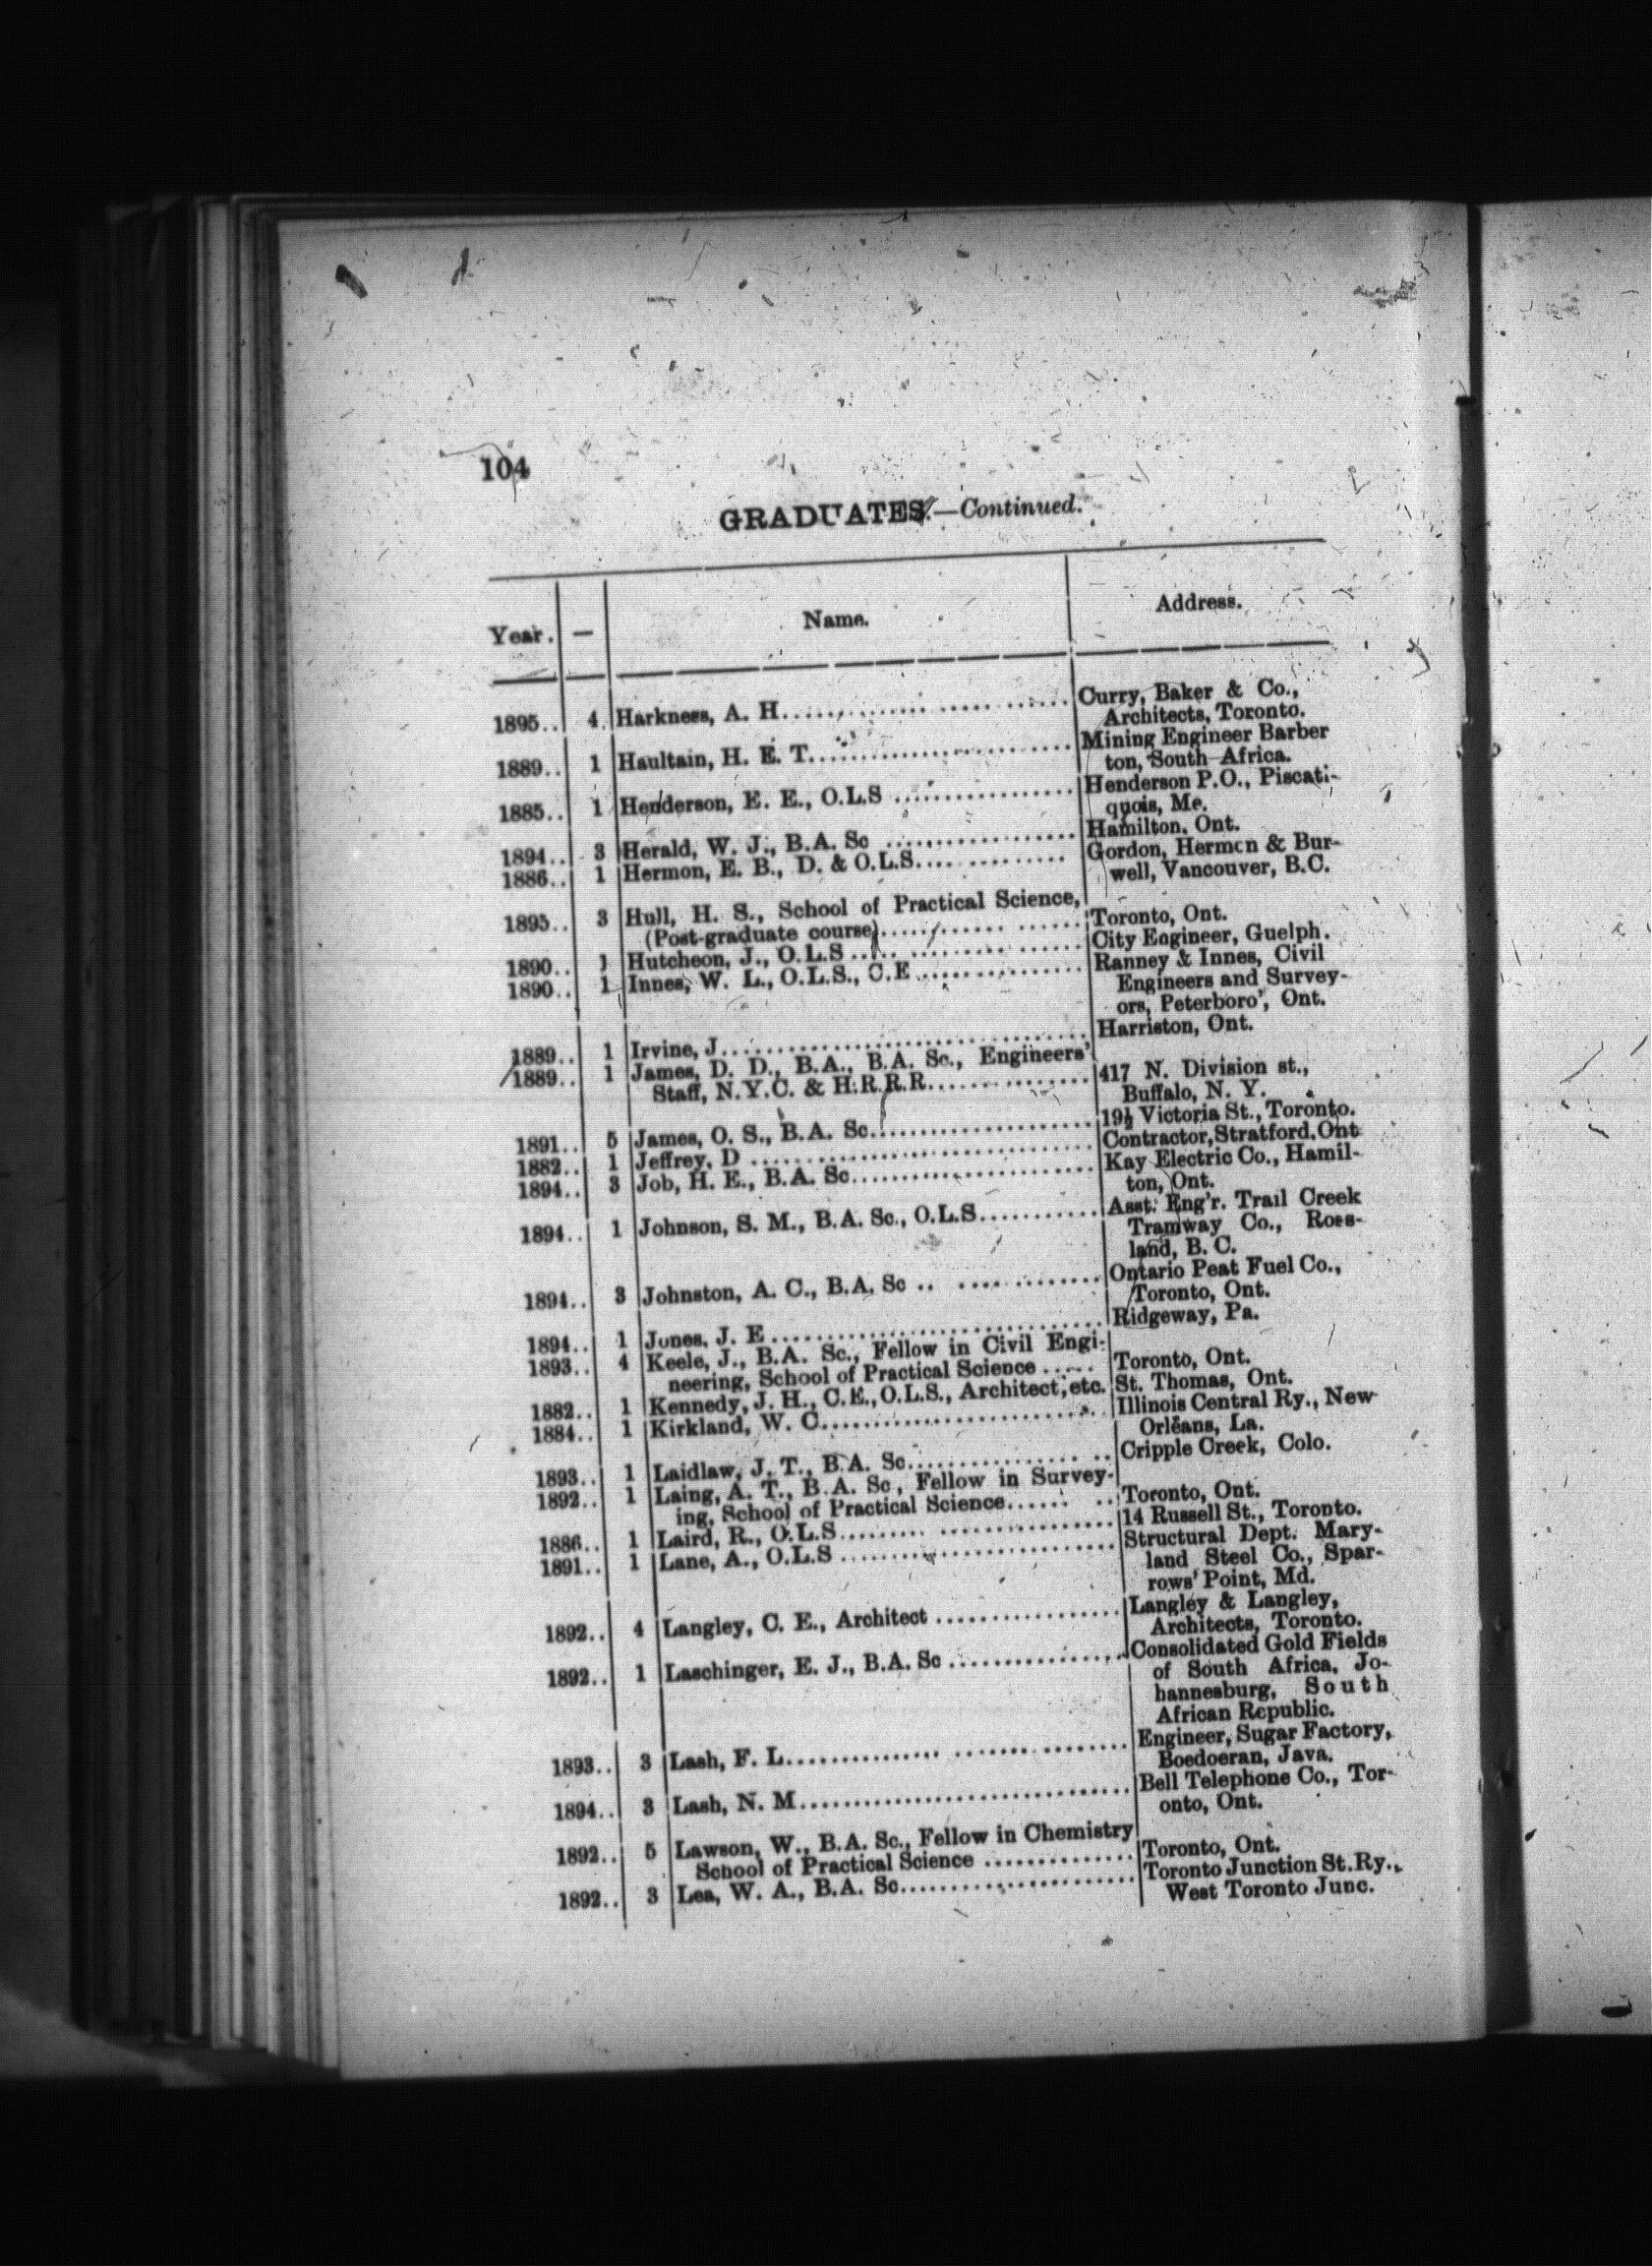 104
GRADUATES.—Continued.
Year. — Name. Address.
1895.. 4 Harkness, A. H. Curry, Baker & Co.,
Architects, Toronto.
1889.. 1 Haultain, H. E. T. Mining Engineer Barber
ton, South Africa.
1885.. 1 Henderson, E. E., O.L.S Henderson P.O., Piscati-
quois, Me.
1894.. 3 Herald, W. J., B.A. Sc Hamilton, Ont.
1886.. 1 Hermon, E. B., D. & O.L.S. Gordon, Hermon & Bur-
well, Vancouver, B.C.
1895.. 3 Hull, H. S., School of Practical Science,
(Post-graduate course) Toronto, Ont.
1890.. 1 Hutcheon, J., O.L.S City Engineer, Guelph.
1890.. 1 Innes, W. L., O.L.S., C.E Ranney & Innes, Civil
Engineers and Survey-
ors, Peterboro', Ont.
1889.. 1 Irvine, J. Harriston, Ont.
1889.. 1 James, D. D., B.A., B.A. Sc., Engineers'
Staff, N.Y.C. & H.R.R.R. 417 N. Division st.,
Buffalo, N. Y.
1891.. 5 James, O. S., B.A. Sc. 19½ Victoria St., Toronto.
1882.. 1 Jeffrey, D Contractor, Stratford, Ont
1894.. 3 Job, H. E., B.A. Sc. Kay Electric Co., Hamil-
ton, Ont.
1894.. 1 Johnson, S. M., B.A. Sc., O.L.S. Asst. Eng'r. Trail Creek
Tramway Co., Ross-
land, B. C.
1894.. 3 Johnston, A. C., B.A. Sc Ontario Peat Fuel Co.,
Toronto, Ont.
1894.. 1 Jones, J. E Ridgeway, Pa.
1893.. 4 Keele, J., B.A. Sc., Fellow in Civil Engi-
neering, School of Practical Science Toronto, Ont.
1882.. 1 Kennedy, J. H., C.E., O.L.S., Architect, etc. St. Thomas, Ont.
1884.. 1 Kirkland, W. C. Illinois Central Ry., New
Orleans, La.
1893.. 1 Laidlaw, J. T., B.A. Sc. Cripple Creek, Colo.
1892.. 1 Laing, A. T., B.A. Sc, Fellow in Survey-
ing, School of Practical Science Toronto, Ont.
1886.. 1 Laird, R., O.L.S. 14 Russell St., Toronto.
1891.. 1 Lane, A., O.L.S Structural Dept. Mary-
land Steel Co., Spar-
rows' Point, Md.
1892.. 4 Langley, C. E., Architect Langley & Langley,
Architects, Toronto.
1892.. 1 Laschinger, E. J., B.A. Sc Consolidated Gold Fields
of South Africa, Jo-
hannesburg, South
African Republic.
1893.. 3 Lash, F. L. Engineer, Sugar Factory,
Boedoeran, Java.
1894.. 3 Lash, N. M. Bell Telephone Co., Tor-
onto, Ont.
1892.. 5 Lawson, W., B.A. Sc., Fellow in Chemistry
School of Practical Science Toronto, Ont.
1892.. 3 Lea, W. A., B.A. Sc. Toronto Junction St.Ry.,
West Toronto Junc.